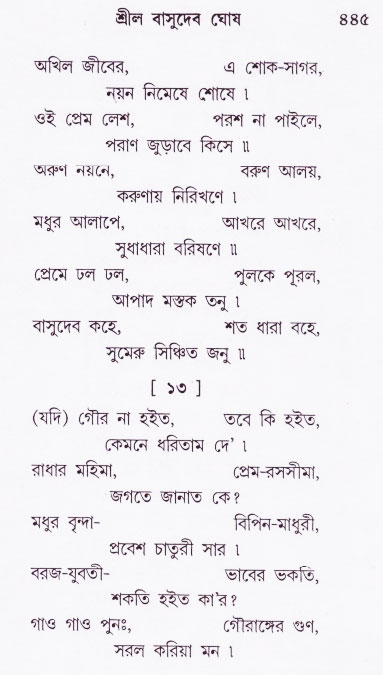 শ্রীল বাসুদেব ঘোষ ৪৪৫
অখিল জীবের, এ শোক-সাগর,
নয়ন নিমেষে শোষে ।
ওই প্রেম লেশ, পরশ না পাইলে,
পরাণ জুড়াবে কিসে ॥
অরুণ নয়নে, বরুণ আলয়,
করুণায় নিরিখণে ।
মধুর আলাপে, আখরে আখরে,
সুধাধারা বরিষণে ॥
প্রেমে ঢল ঢল, পুলকে পূরল,
আপাদ মস্তক তনু ।
বাসুদেব কহে, শত ধারা বহে,
সুমেরু সিঞ্চিত জনু ॥
[ ১৩ ]
(যদি) গৌর না হইত, তবে কি হইত,
কেমনে ধরিতাম দে' ।
রাধার মহিমা, প্রেম-রসসীমা,
জগতে জানাত কে?
মধুর বৃন্দা- বিপিন-মাধুরী,
প্রবেশ চাতুরী সার ।
বরজ-যুবতী- ভাবের ভকতি,
শকতি হইত কা'র?
গাও গাও পুনঃ, গৌরাঙ্গের গুণ,
সরল করিয়া মন ।